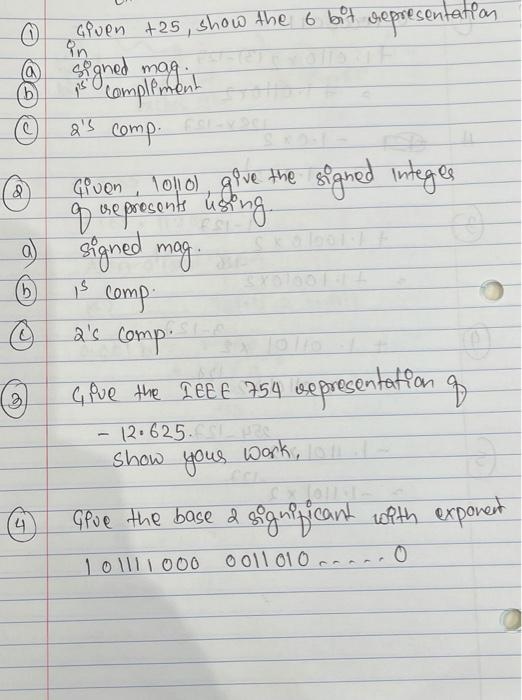 ① Given +25, show the 6 bit representation
in
ⓐ signed mag.
ⓑ 1s complement
ⓒ 2's comp.
② Given, 101101, give the signed integer
it represents using.
a) signed mag.
ⓑ 1s comp.
ⓒ 2's comp.
③ Give the IEEE 754 representation of
- 12.625.
show your work.
④ Give the base 2 significant with exponent
101111000 0011010.....0